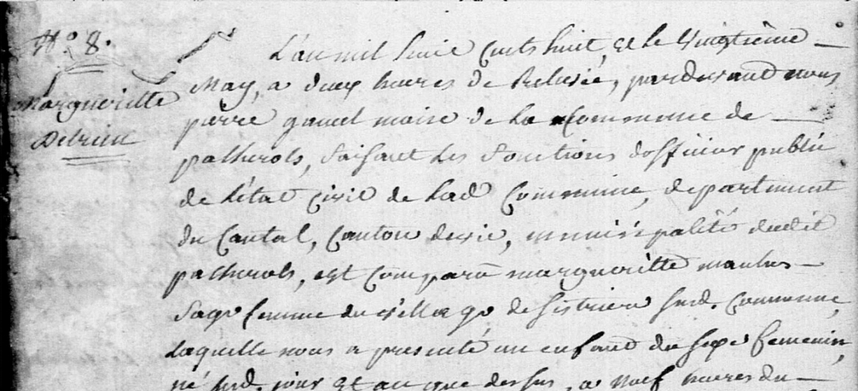 N.º 8.
Margueritte
Delrieu
L'an mil huit cents huit, et le vingtième
May, a deux heures de Relevée, pardevant nous
pierre gamel maire de la Commune de
pailherols, faisant les fonctions d'officier public
de l'état civil de lad. Commune, département
du Cantal, Canton de vic, municipalité dudit
pailherols, est Comparu margueritte
sage femme du village de susd. Commune,
laquelle nous a presenté un enfant du sexe femenin,
né susd. jour et an que dessus, a neuf heures du